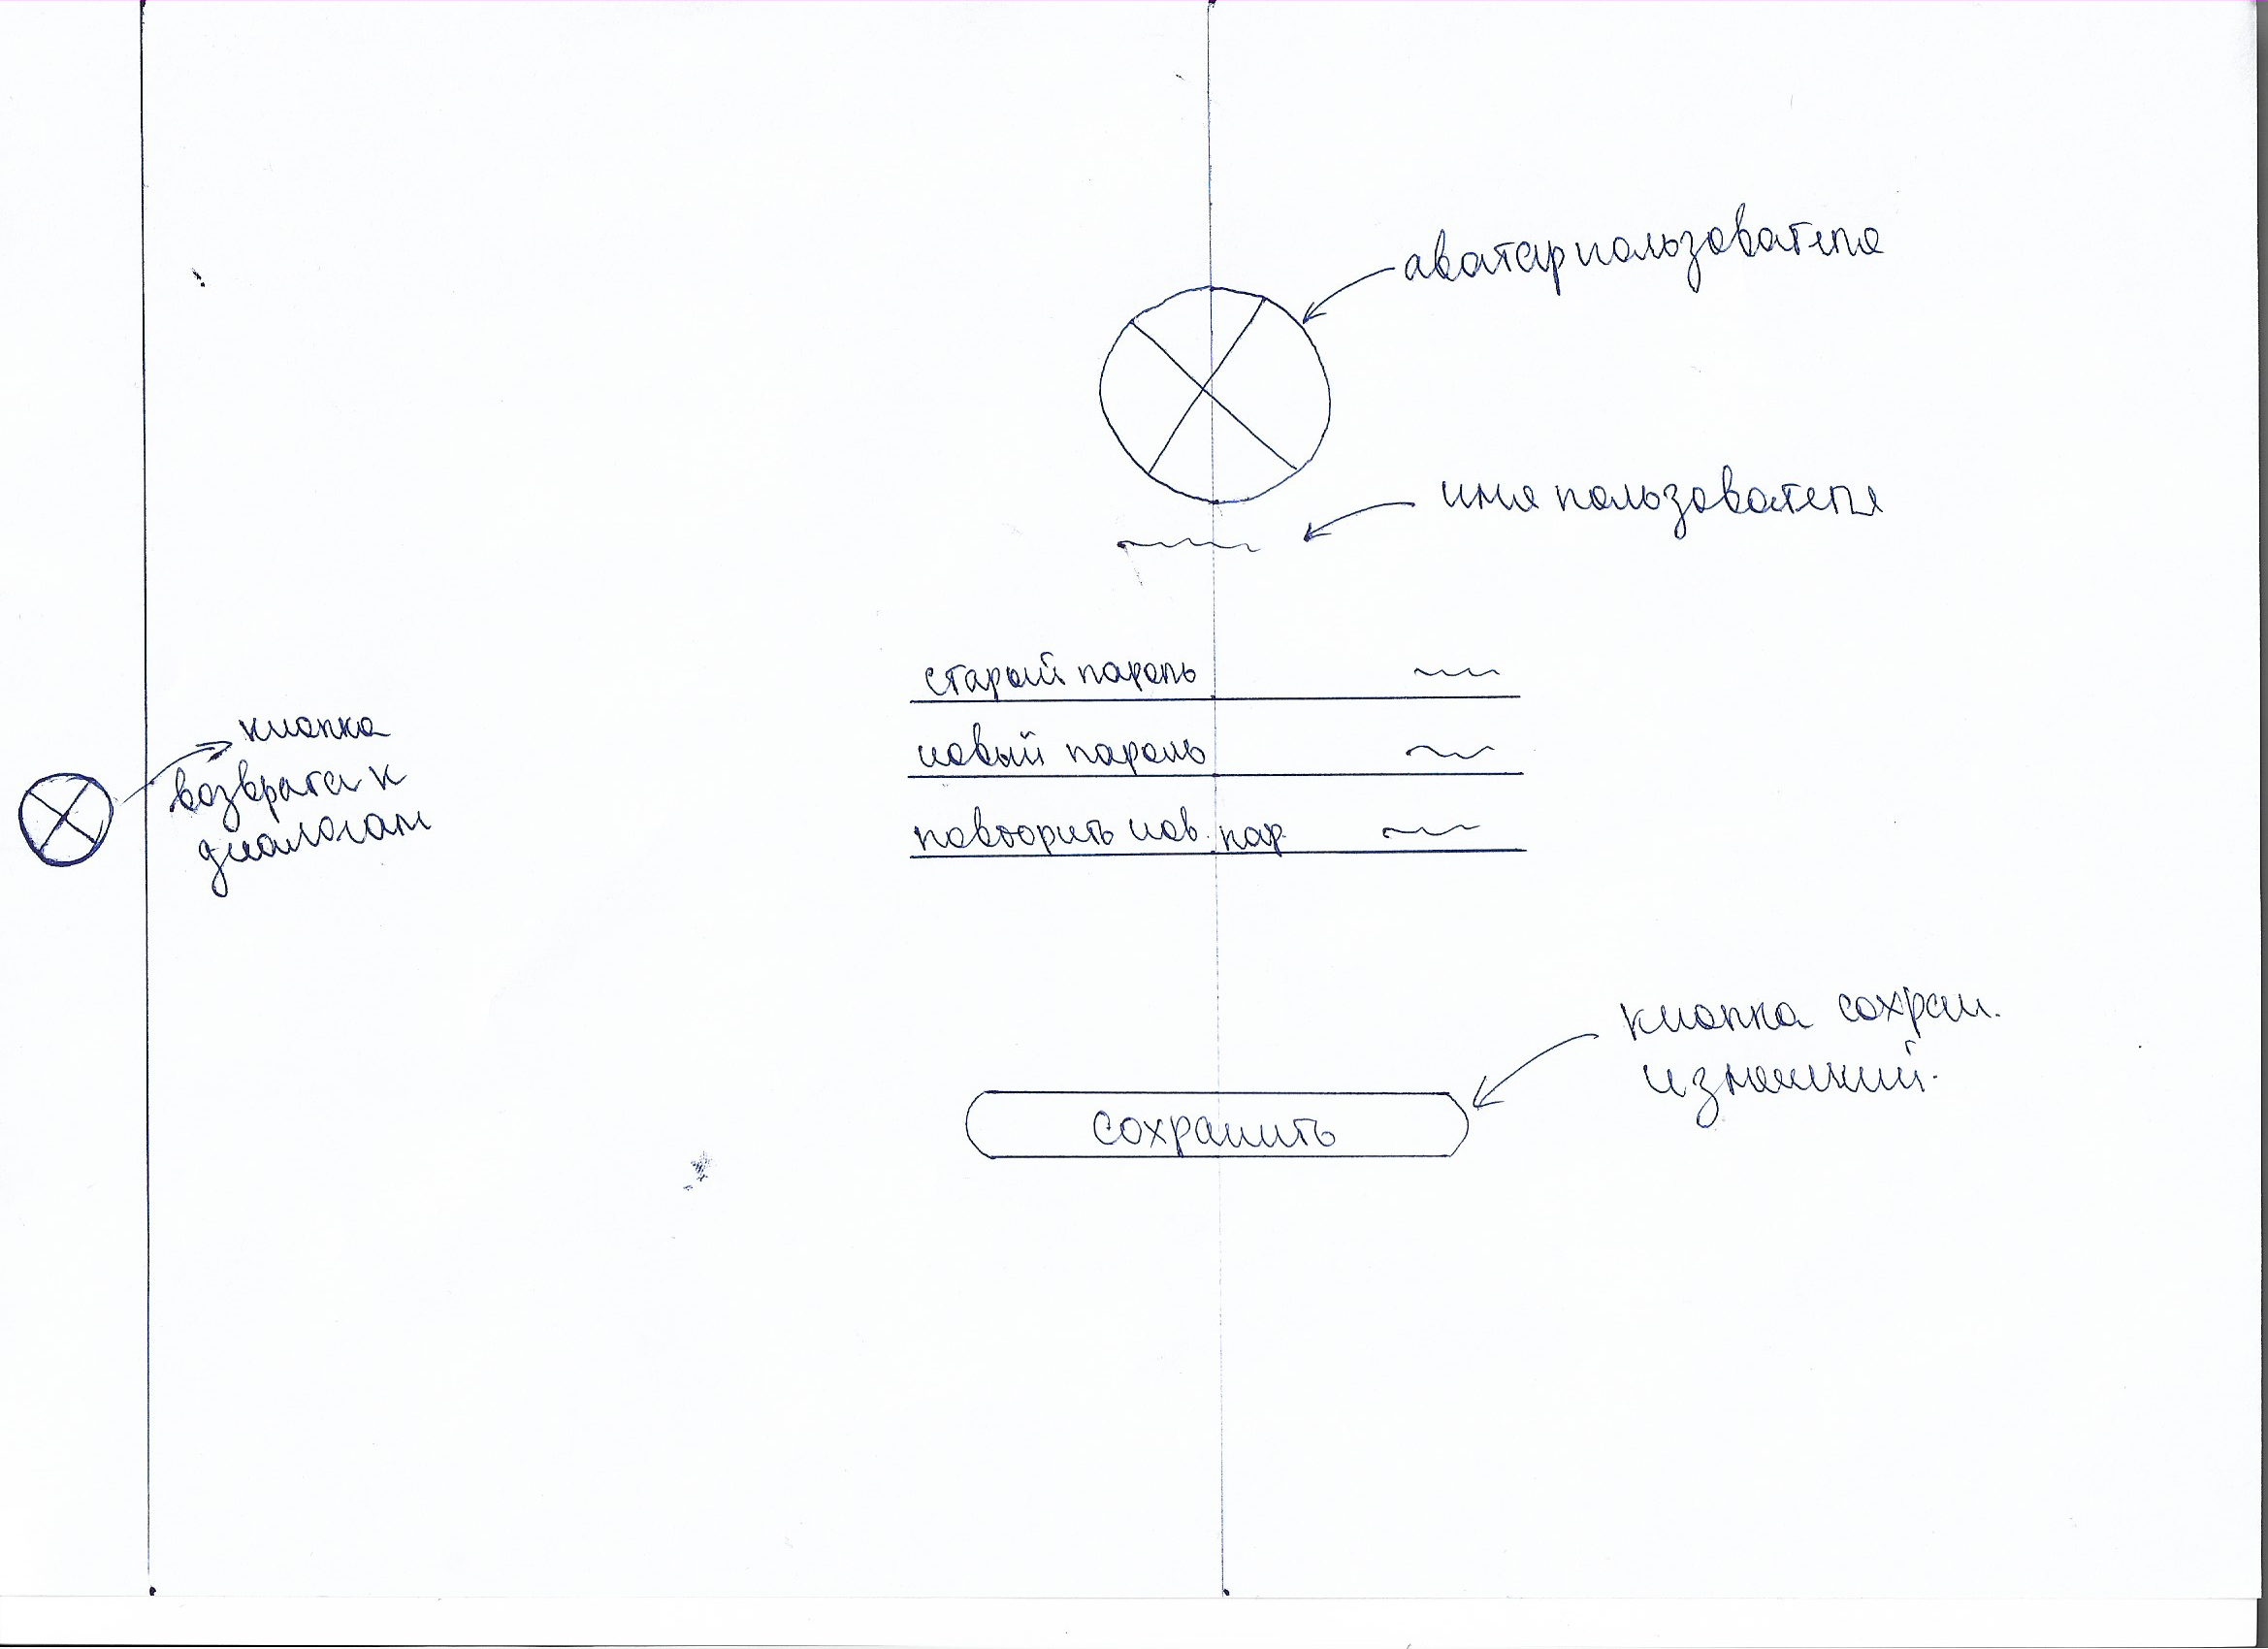 аватар пользователя
имя пользователя
старый пароль
новый пароль
повторить нов. пар.
кнопка
возврата к
диалогам
кнопка сохран.
изменений.
сохранить